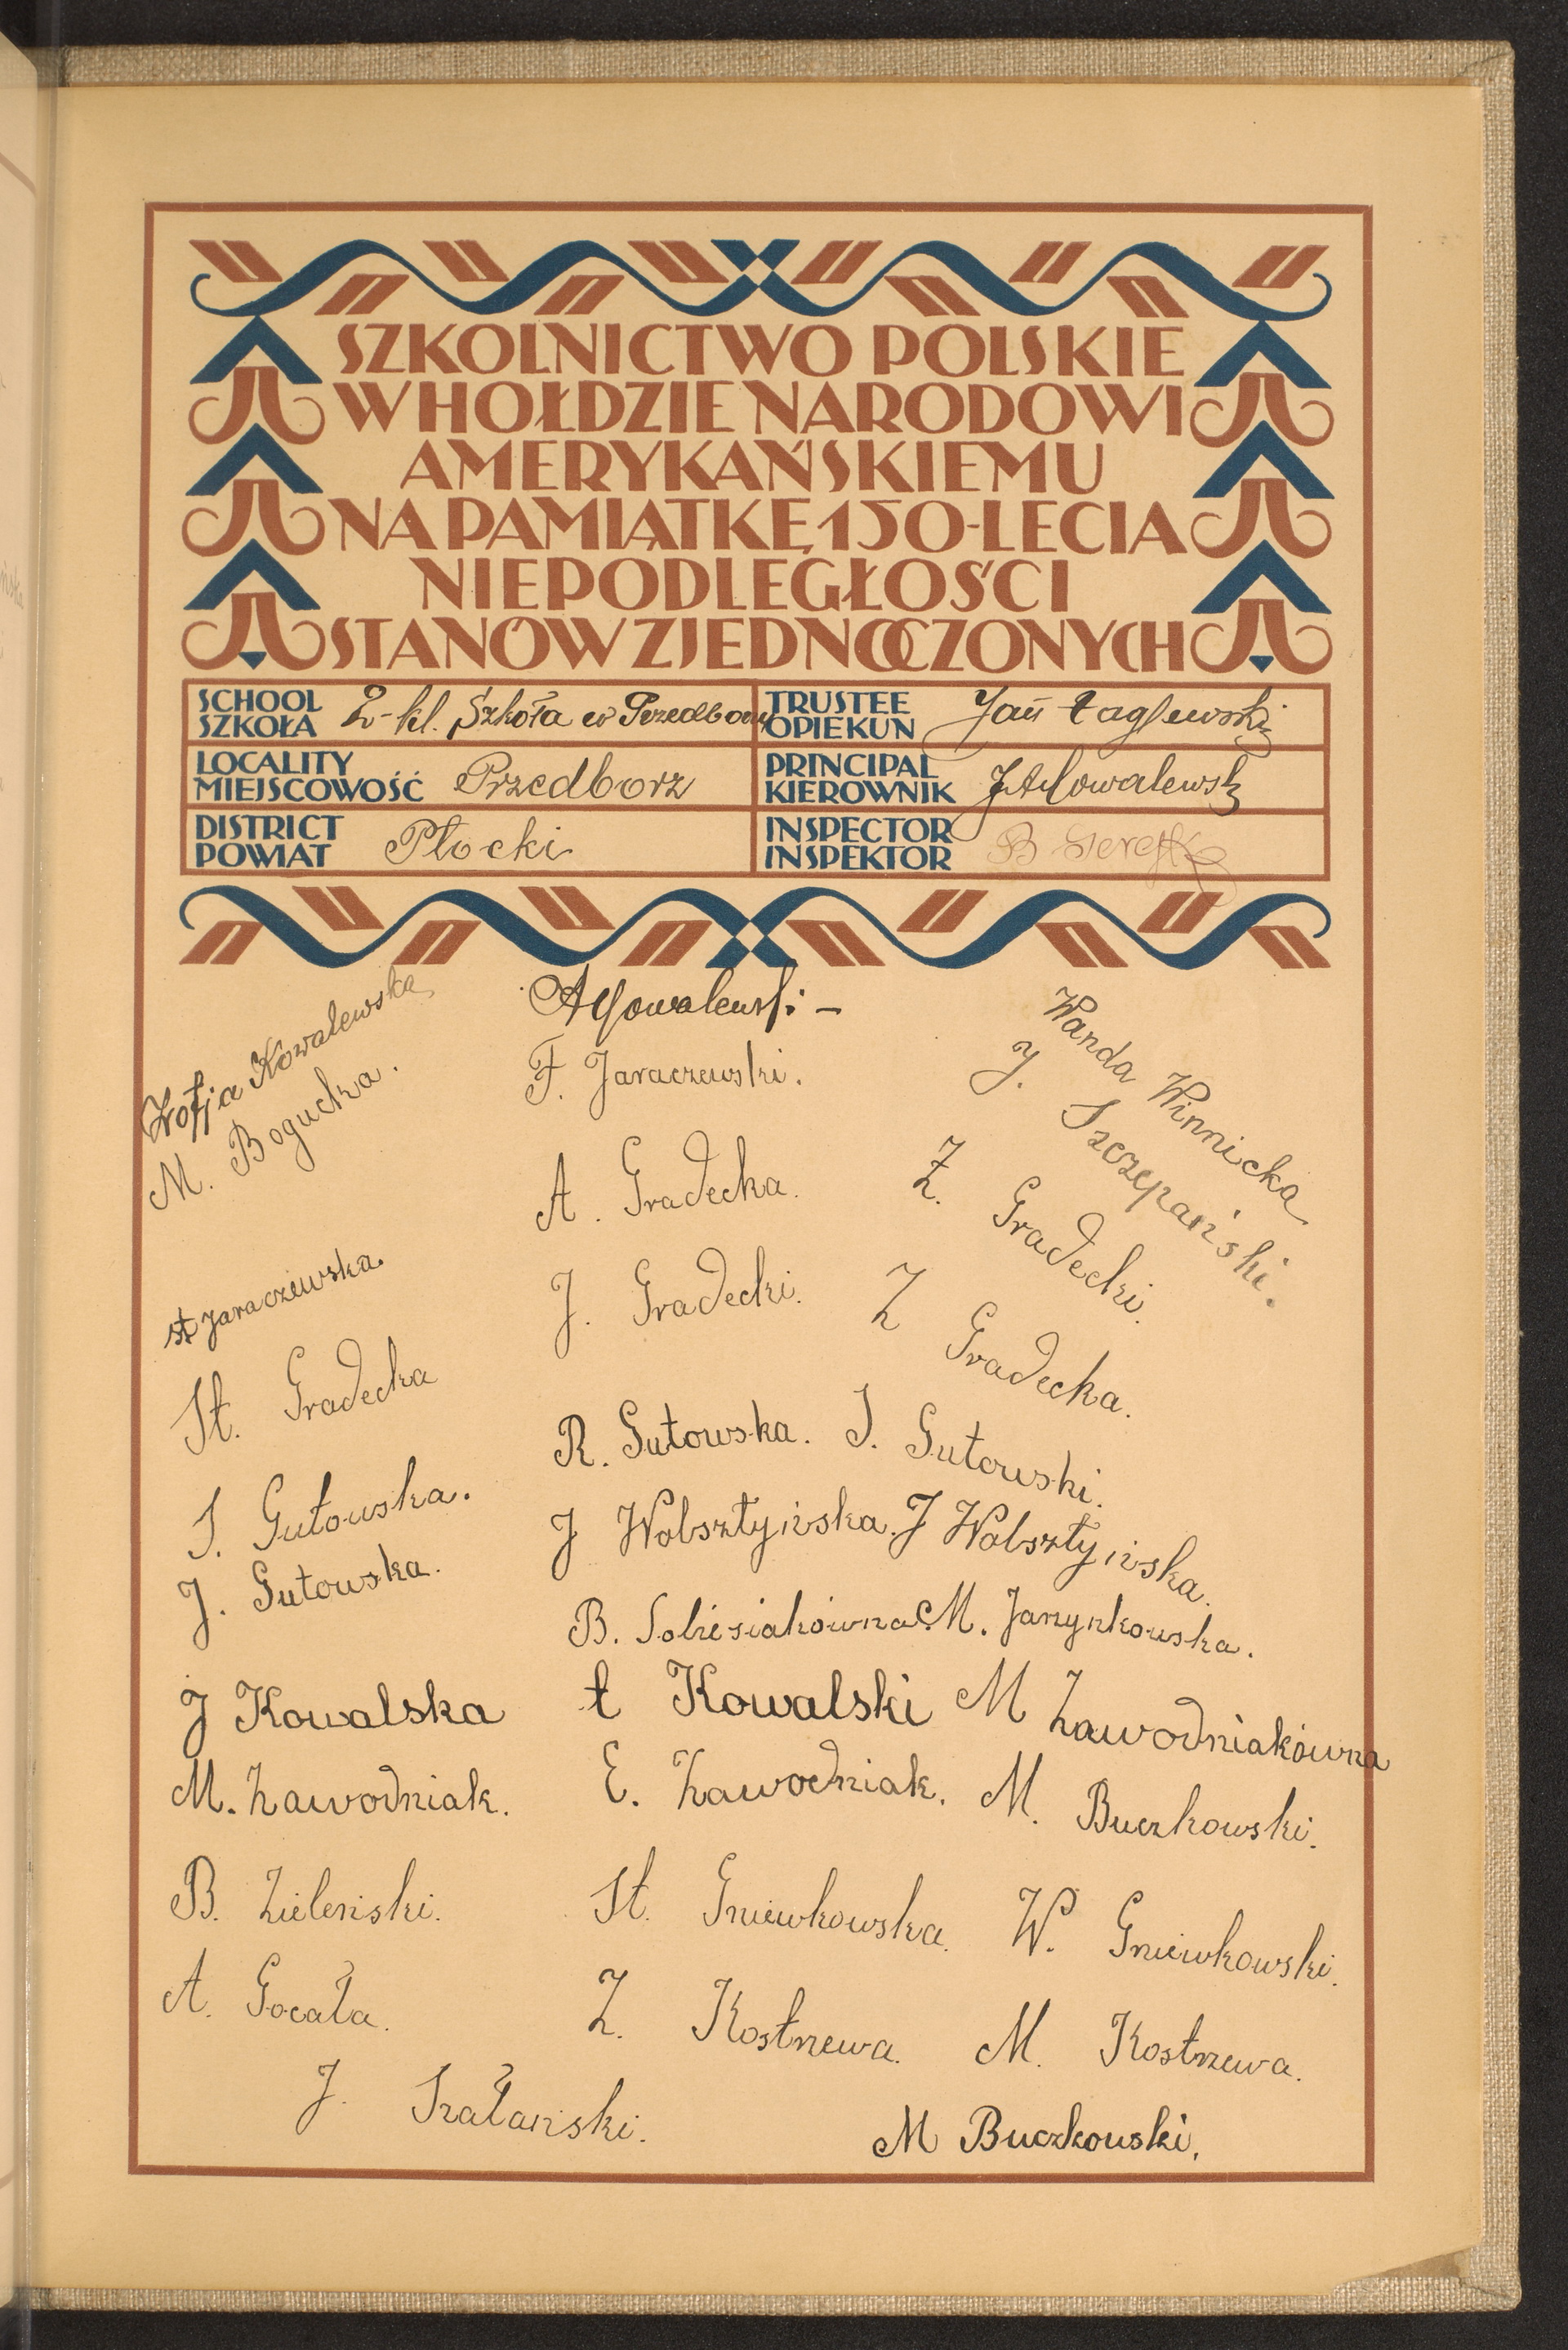 SZKOLNICTWO POLSKIE
W HOŁDZIE NARODOWI
AMERYKAŃSKIEMU
NA PAMIĄTKĘ 150-LECIA
NIEPODLEGŁOŚCI
STANÓW ZJEDNOCZONYCH
SCHOOL
SZKOŁA 2-kl. Szkoła w Przedborzu
TRUSTEE
OPIEKUN Jan Łaglewski
LOCALITY
MIEJSCOWOŚĆ Przedborz
PRINCIPAL
KIEROWNIK Kowalewski
DISTRICT
POWIAT Płocki
INSPECTOR
INSPEKTOR B
Zofja Kowalewska
M. Bogucka.
A Kowalewski -
F. Jaraczewski.
Wanda Winnicka
J. Szczepański.
A. Gradecka.
Z. Gradecki.
st Jaraczewska
J. Gradecki.
Z Gradecka.
St. Gradecka
R. Gutowska. S. Gutowski.
S. Gutowska.
J Wolsztyńska. J Wolsztyńska.
J. Gutowska.
B. Sobiesiakówna M. Janzynkowska.
J Kowalska Ł Kowalski M Zawodniakówna
M. Zawodniak. E. Zawodniak. M. Buczkowski.
B. Zieleński. St. Gniewkowska. W. Gniewkowski.
A. Gocała. Z. Kostrzewa. M. Kostrzewa.
J. Szałański. M Buczkowski.